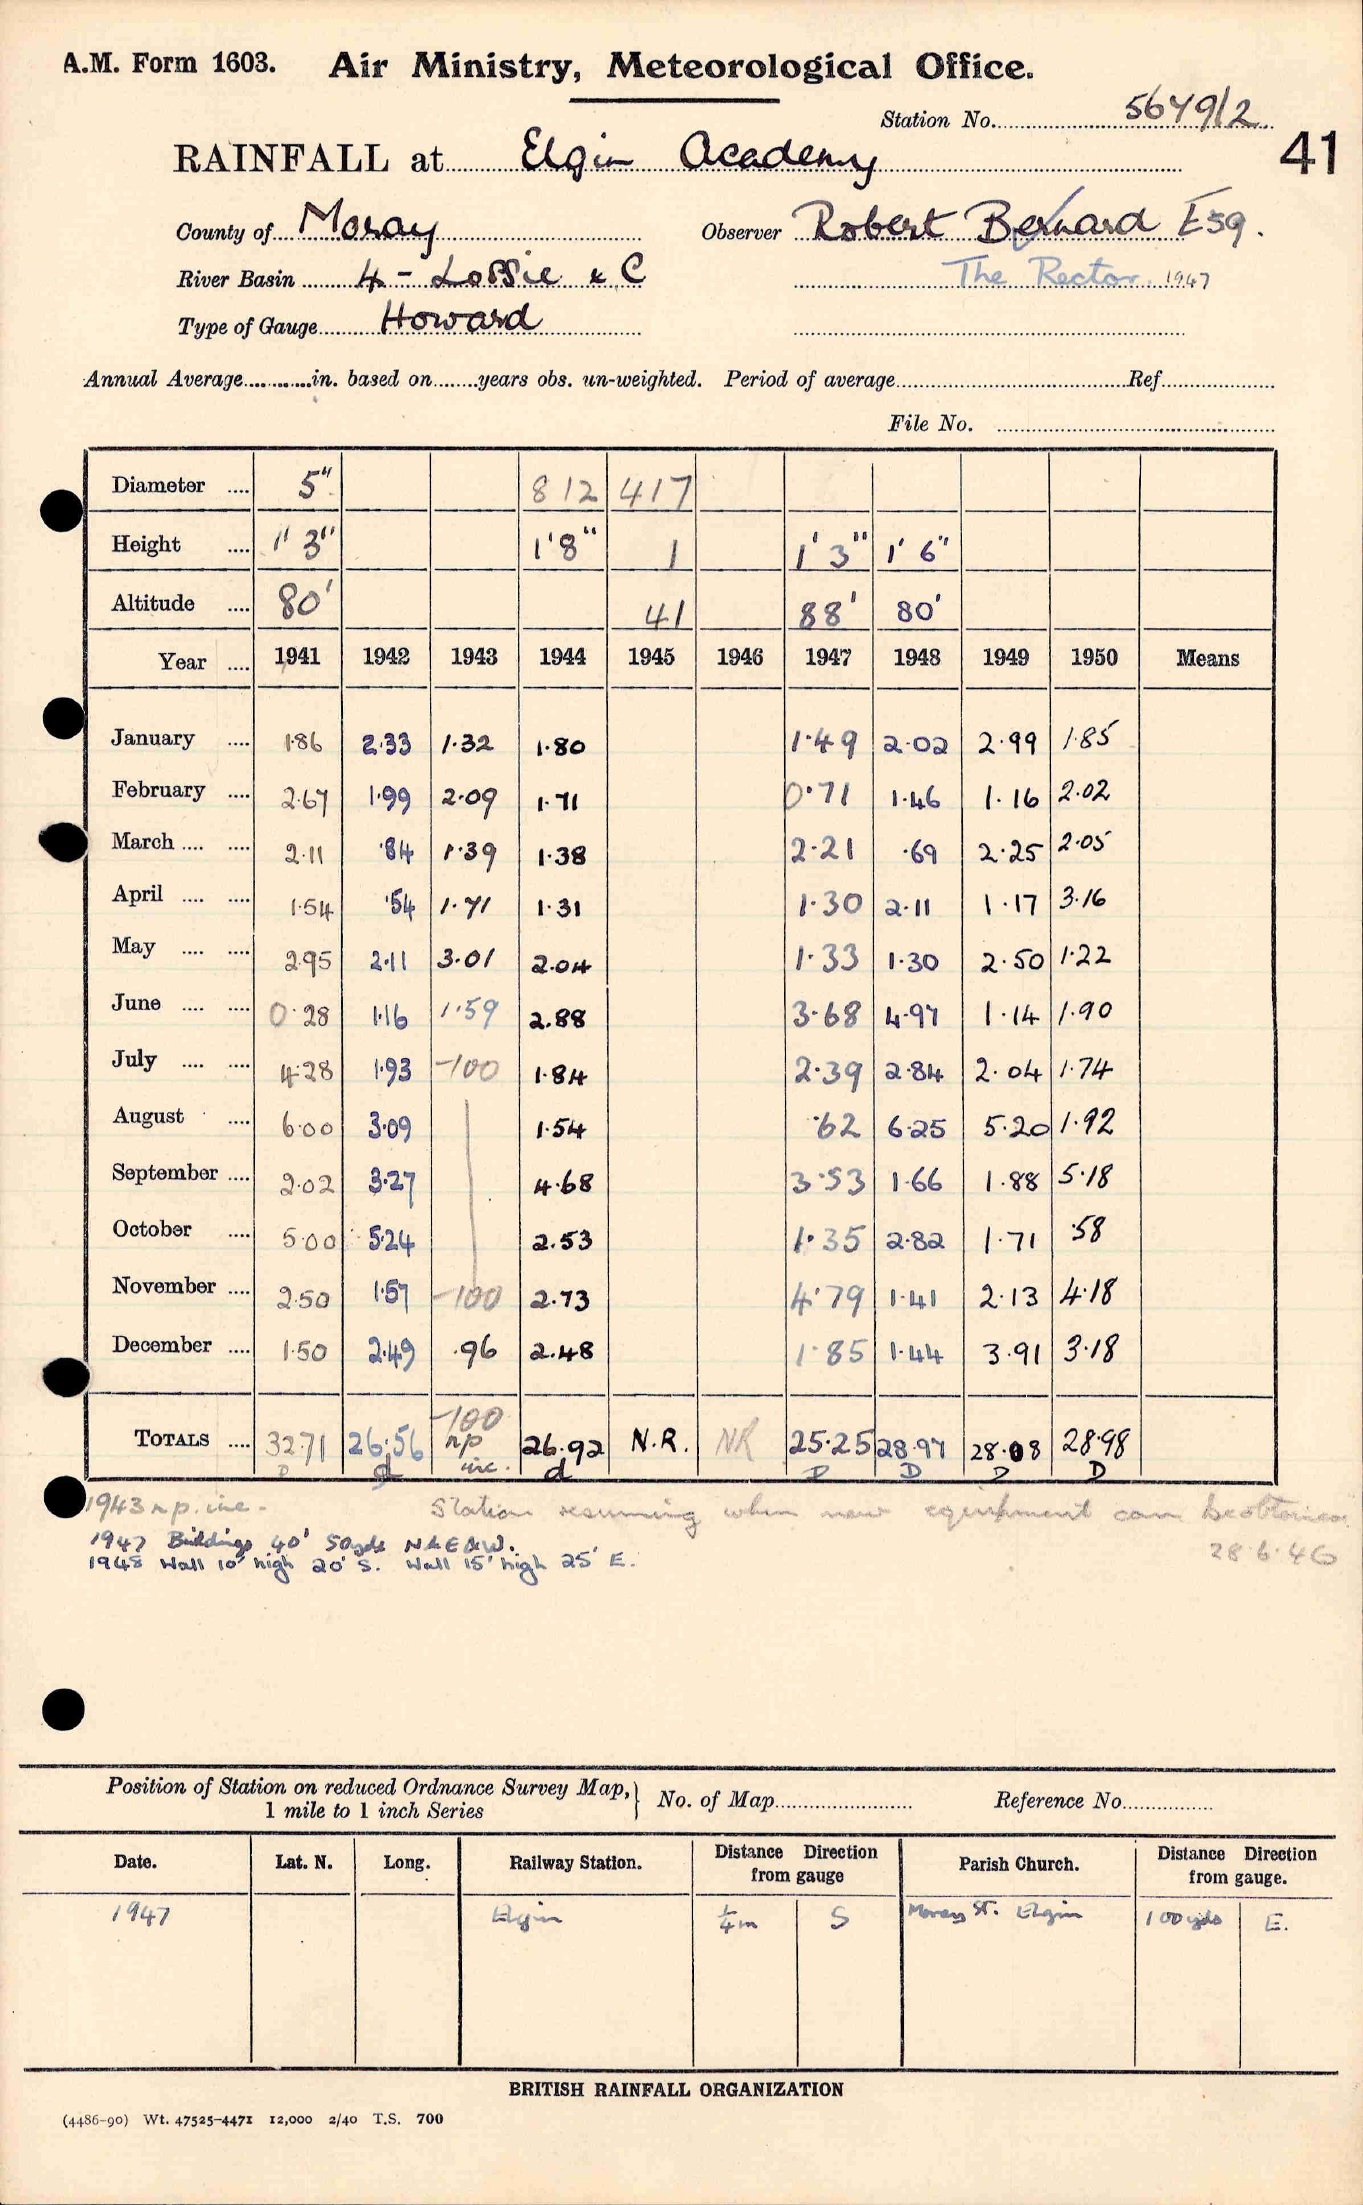 A.M. Form 1603. Air Ministry, Meteorological Office.
Station No. 5679/2
41
RAINFALL at Elgin Academy
County of Moray Observer Robert Bernard Esq.
River Basin 4 - Lossie & C The Rector. 1947
Type of Gauge Howard
Annual Average............in. based on........years obs. un-weighted. Period of average Ref.
File No.
Diameter .... 5" 812 417
Height .... 1' 3" 1'8" 1 1' 3" 1' 6"
Altitude .... 80' 41 88' 80'
Year .... 1941 1942 1943 1944 1945 1946 1947 1948 1949 1950 Means
January .... 1.86 2.33 1.32 1.80 1.49 2.02 2.99 1.85
February .... 2.67 1.99 2.09 1.71 0.71 1.46 1.16 2.02
March .... .... 2.11 .84 1.39 1.38 2.21 .69 2.25 2.05
April .... .... 1.54 .54 1.71 1.31 1.30 2.11 1.17 3.16
May .... .... 2.95 2.11 3.01 2.04 1.33 1.30 2.50 1.22
June .... .... 0.28 1.16 1.59 2.88 3.68 4.97 1.14 1.90
July .... .... 4.28 1.93 -100 1.84 2.39 2.84 2.04 1.74
August .... 6.00 3.09 1.54 .62 6.25 5.20 1.92
September .... 2.02 3.27 4.68 3.53 1.66 1.88 5.18
October .... 5.00 5.24 2.53 1.35 2.82 1.71 .58
November .... 2.50 1.57 -100 2.73 4.79 1.41 2.13 4.18
December .... 1.50 2.49 .96 2.48 1.85 1.44 3.91 3.18
-100
TOTALS .... 32.71 26.56 np 26.92 N.R. NR 25.25 28.97 28.08 28.98
D d inc. d D D D D
1943 np. inc. Station resuming when new equipment can be obtained
1947 Buildings 40' 50yds N & E & W.
28.6.46
1948 Wall 10' high 20' S. Wall 15' high 25' E.
Position of Station on reduced Ordnance Survey Map,
1 mile to 1 inch Series
No. of Map Reference No.
Date. Lat. N. Long. Railway Station. Distance from gauge Direction Parish Church. Distance from gauge. Direction
1947 Elgin ¼ m S Moray St. Elgin 100 yds E.
BRITISH RAINFALL ORGANIZATION
(4486-90) Wt. 47525-4471 12,000 2/40 T.S. 700